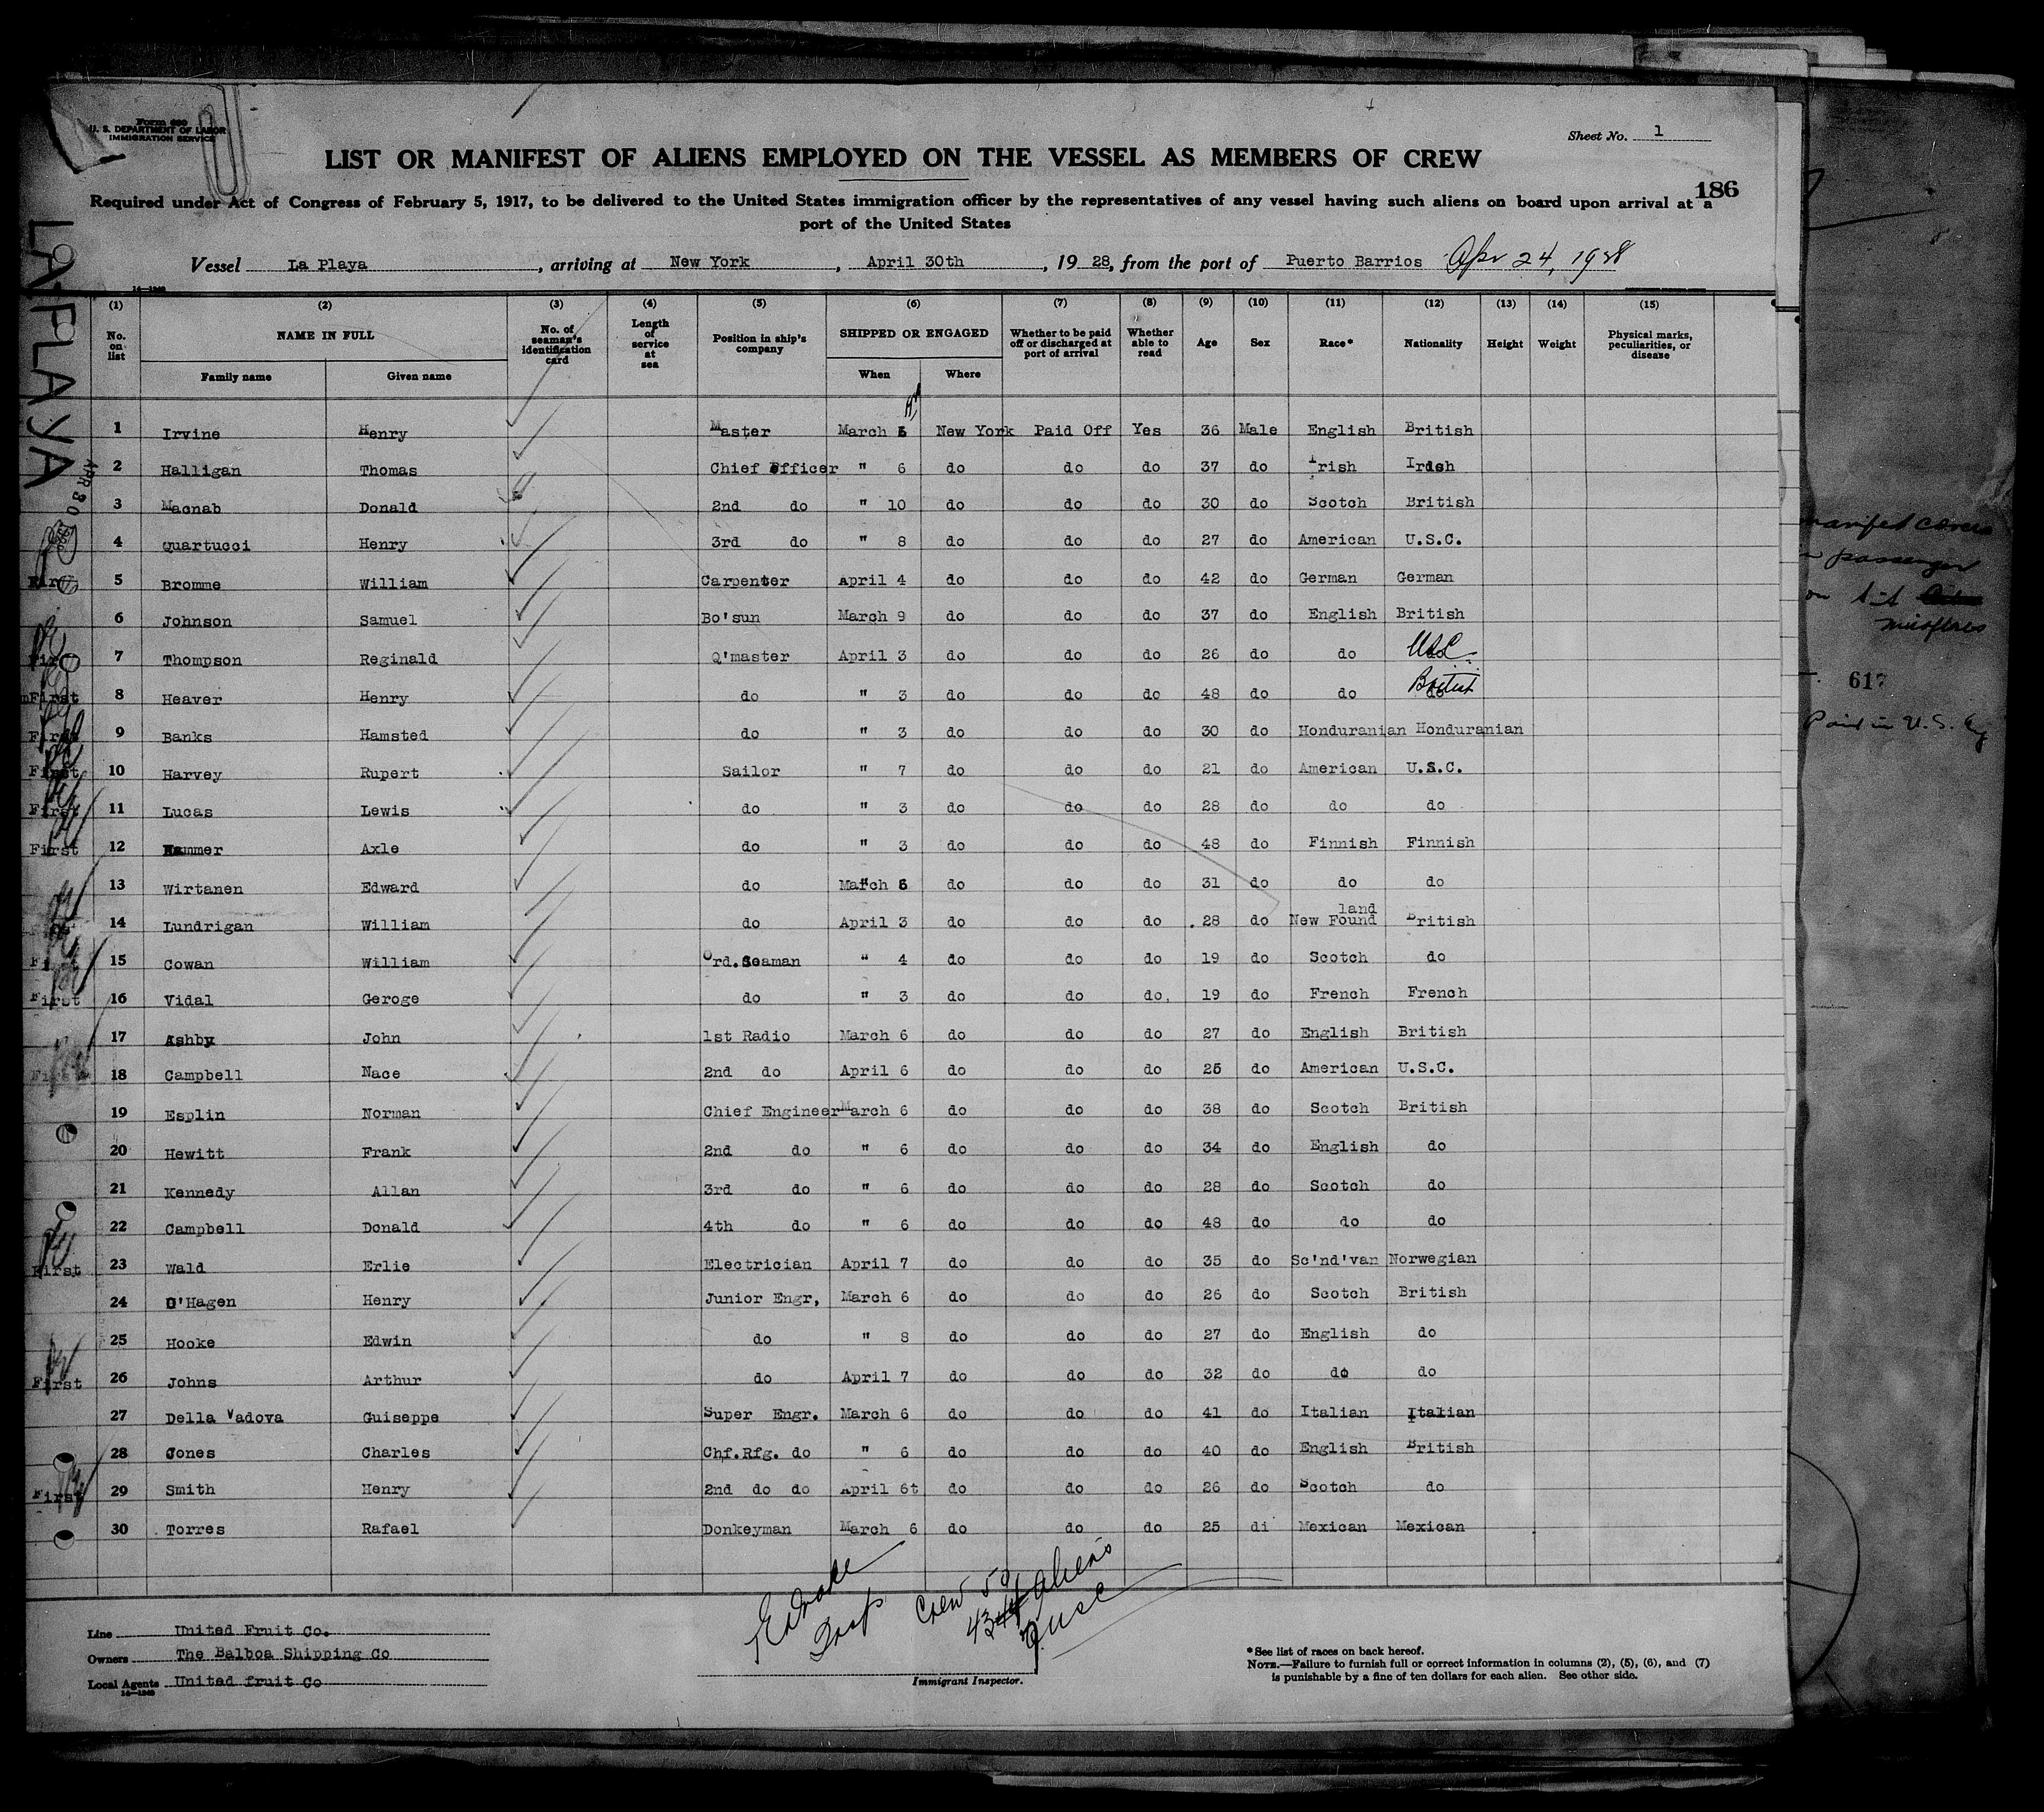 Form 689
U. S. DEPARTMENT OF LABOR
IMMIGRATION SERVICE
Sheet No. 1
LIST OR MANIFEST OF ALIENS EMPLOYED ON THE VESSEL AS MEMBERS OF CREW
186
Required under Act of Congress of February 5, 1917, to be delivered to the United States immigration officer by the representatives of any vessel having such aliens on board upon arrival at a
port of the United States
LA PLAYA
APR 30
Vessel La Playa, arriving at New York, April 30th, 1928, from the port of Puerto Barrios Apr 24, 1928
14—1949
(1) (2) (3) (4) (5) (6) (7) (8) (9) (10) (11) (12) (13) (14) (15)
No. on list NAME IN FULL Family name Given name No. of seaman's identification card Length of service at sea Position in ship's company SHIPPED OR ENGAGED When Where Whether to be paid off or discharged at port of arrival Whether able to read Age Sex Race* Nationality Height Weight Physical marks, peculiarities, or disease
1 Irvine Henry Master March 6 New York Paid Off Yes 36 Male English British
2 Halligan Thomas Chief Officer " 6 do do do 37 do Irish Irdsh
3 Macnab Donald 2nd do " 10 do do do 30 do Scotch British
4 Quartucci Henry 3rd do " 8 do do do 27 do American U.S.C.
First 5 Bromme William Carpenter April 4 do do do 42 do German German
6 Johnson Samuel Bo'sun March 9 do do do 37 do English British
First 7 Thompson Reginald Q'master April 3 do do do 26 do do USC
First 8 Heaver Henry do " 3 do do do 48 do do British
First 9 Banks Hamsted do " 3 do do do 30 do Honduranian Honduranian
First 10 Harvey Rupert Sailor " 7 do do do 21 do American U.S.C.
First 11 Lucas Lewis do " 3 do do do 28 do do do
First 12 Hammer Axle do " 3 do do do 48 do Finnish Finnish
13 Wirtanen Edward do March 6 do do do 31 do do do
14 Lundrigan William do April 3 do do do 28 do New Found land British
First 15 Cowan William Ord.Seaman " 4 do do do 19 do Scotch do
First 16 Vidal Geroge do " 3 do do do, 19 do French French
17 Ashby John 1st Radio March 6 do do do 27 do English British
First 18 Campbell Nace 2nd do April 6 do do do 25 do American U.S.C.
19 Esplin Norman Chief Engineer March 6 do do do 38 do Scotch British
20 Hewitt Frank 2nd do " 6 do do do 34 do English do
21 Kennedy Allan 3rd do " 6 do do do 28 do Scotch do
22 Campbell Donald 4th do " 6 do do do 48 do do do
First 23 Wald Erlie Electrician April 7 do do do 35 do Sc'nd'van Norwegian
24 O'Hagen Henry Junior Engr, March 6 do do do 26 do Scotch British
25 Hooke Edwin do " 8 do do do 27 do English do
First 26 Johns Arthur do April 7 do do do 32 do do do
27 Della Vadova Guiseppe Super Engr. March 6 do do do 41 do Italian Italian
28 Jones Charles Chf.Rfg. do " 6 do do do 40 do English British
First 29 Smith Henry 2nd do do April 6t do do do 26 do Scotch do
30 Torres Rafael Donkeyman March 6 do do do 25 di Mexican Mexican
Crew 50
43 Aliens
7 USC
Line United Fruit Co.
Owners The Balboa Shipping Co
Local Agents United fruit Co
14—1949
Immigrant Inspector.
*See list of races on back hereof.
NOTE.—Failure to furnish full or correct information in columns (2), (5), (6), and (7)
is punishable by a fine of ten dollars for each alien. See other side.
manifest covers
passenger
on
617
Paid in U.S.